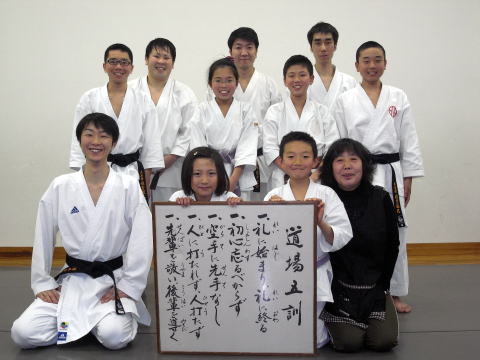 道場五訓
一、礼に始まり、礼に終る
一、初心忘るべからず
一、空手に先手なし
一、人に打たれず、人打たず
一、先輩を敬い、後輩を導く